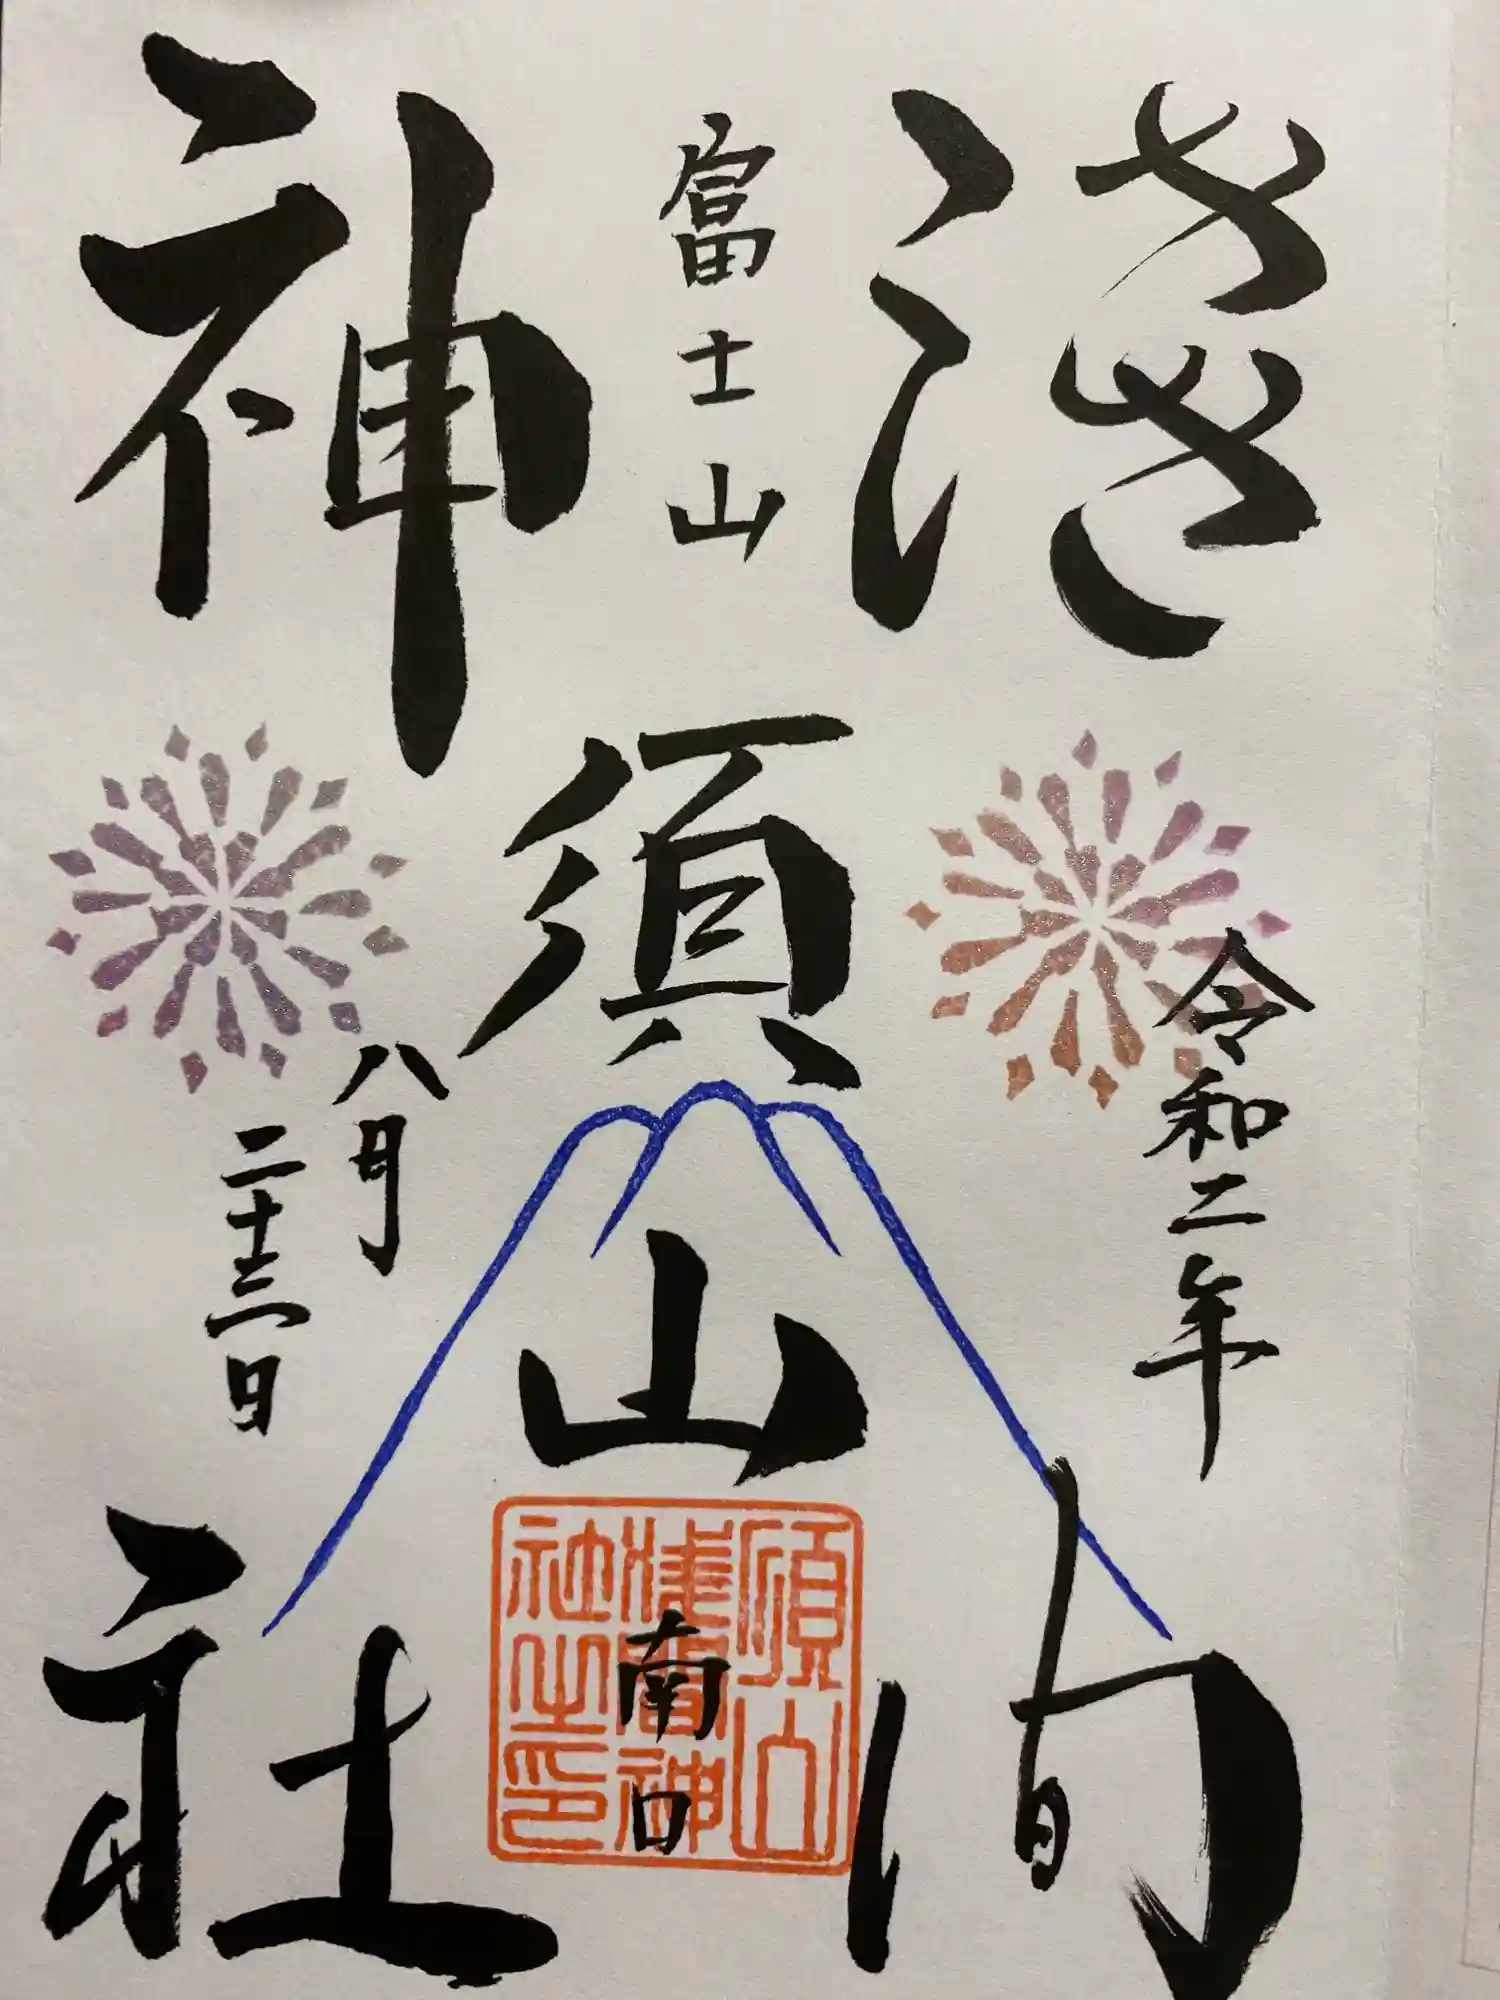 淺間
令和二年
富士山
須山
南口
須山
淺間神
社之印
神社
八月
二十三日